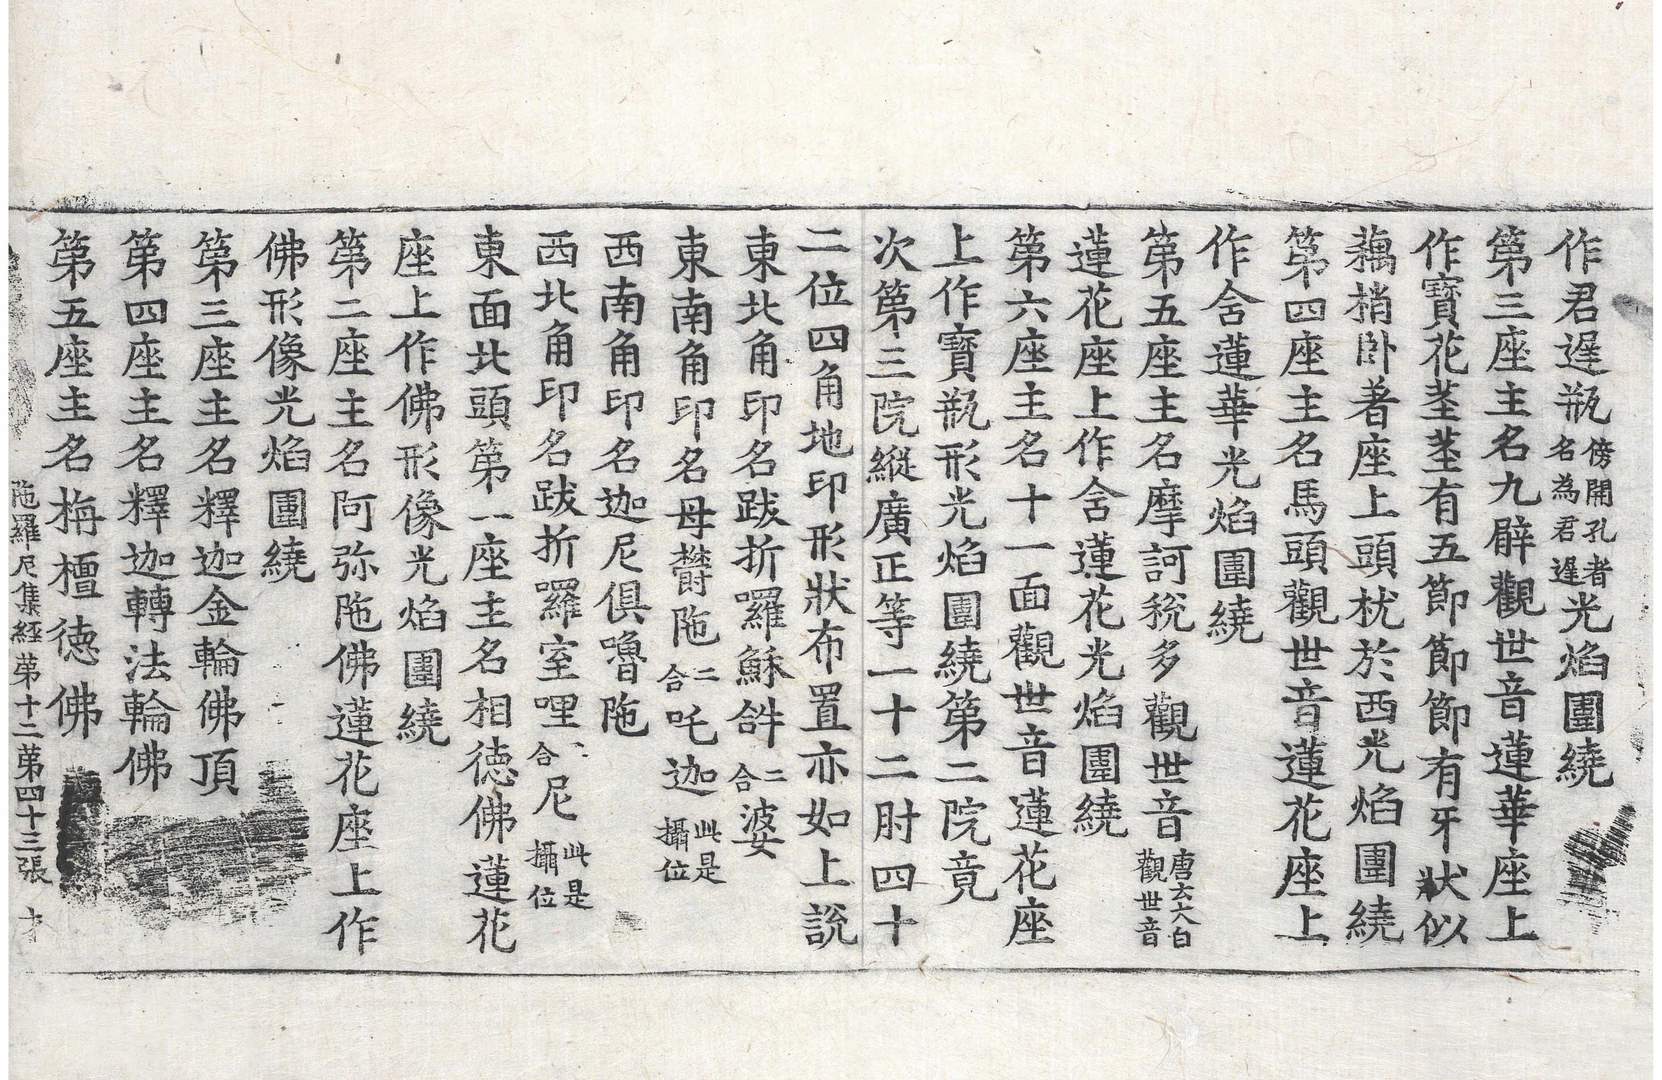 作君遲瓶傍開孔者名為君遲光焰圍繞
第三座主名九臂觀世音蓮華座上
作寶花莖莖有五節節節有牙狀似
藕梢卧著座上頭枕於西光焰圍繞
第四座主名馬頭觀世音蓮花座上
作含蓮華光焰圍繞
第五座主名摩訶稅多觀世音唐云大白觀世音
蓮花座上作含蓮花光焰圍繞
第六座主名十一面觀世音蓮花座
上作寶瓶形光焰圍繞第二院竟
次第三院縱廣正等一十二肘四十
二位四角地印形狀布置亦如上說
東北角印名跋折囉穌皏二合婆
東南角印名母欝陁二合吒迦此是攝位
西南角印名迦尼俱嚕陁
西北角印名跋折囉室哩二合尼此是攝位
東面北頭第一座主名相德佛蓮花
座上作佛形像光焰圍繞
第二座主名阿弥陁佛蓮花座上作
佛形像光焰圍繞
第三座主名釋迦金輪佛頂
第四座主名釋迦轉法輪佛
第五座主名栴檀德佛
陁羅尼集經第十二第四十三張